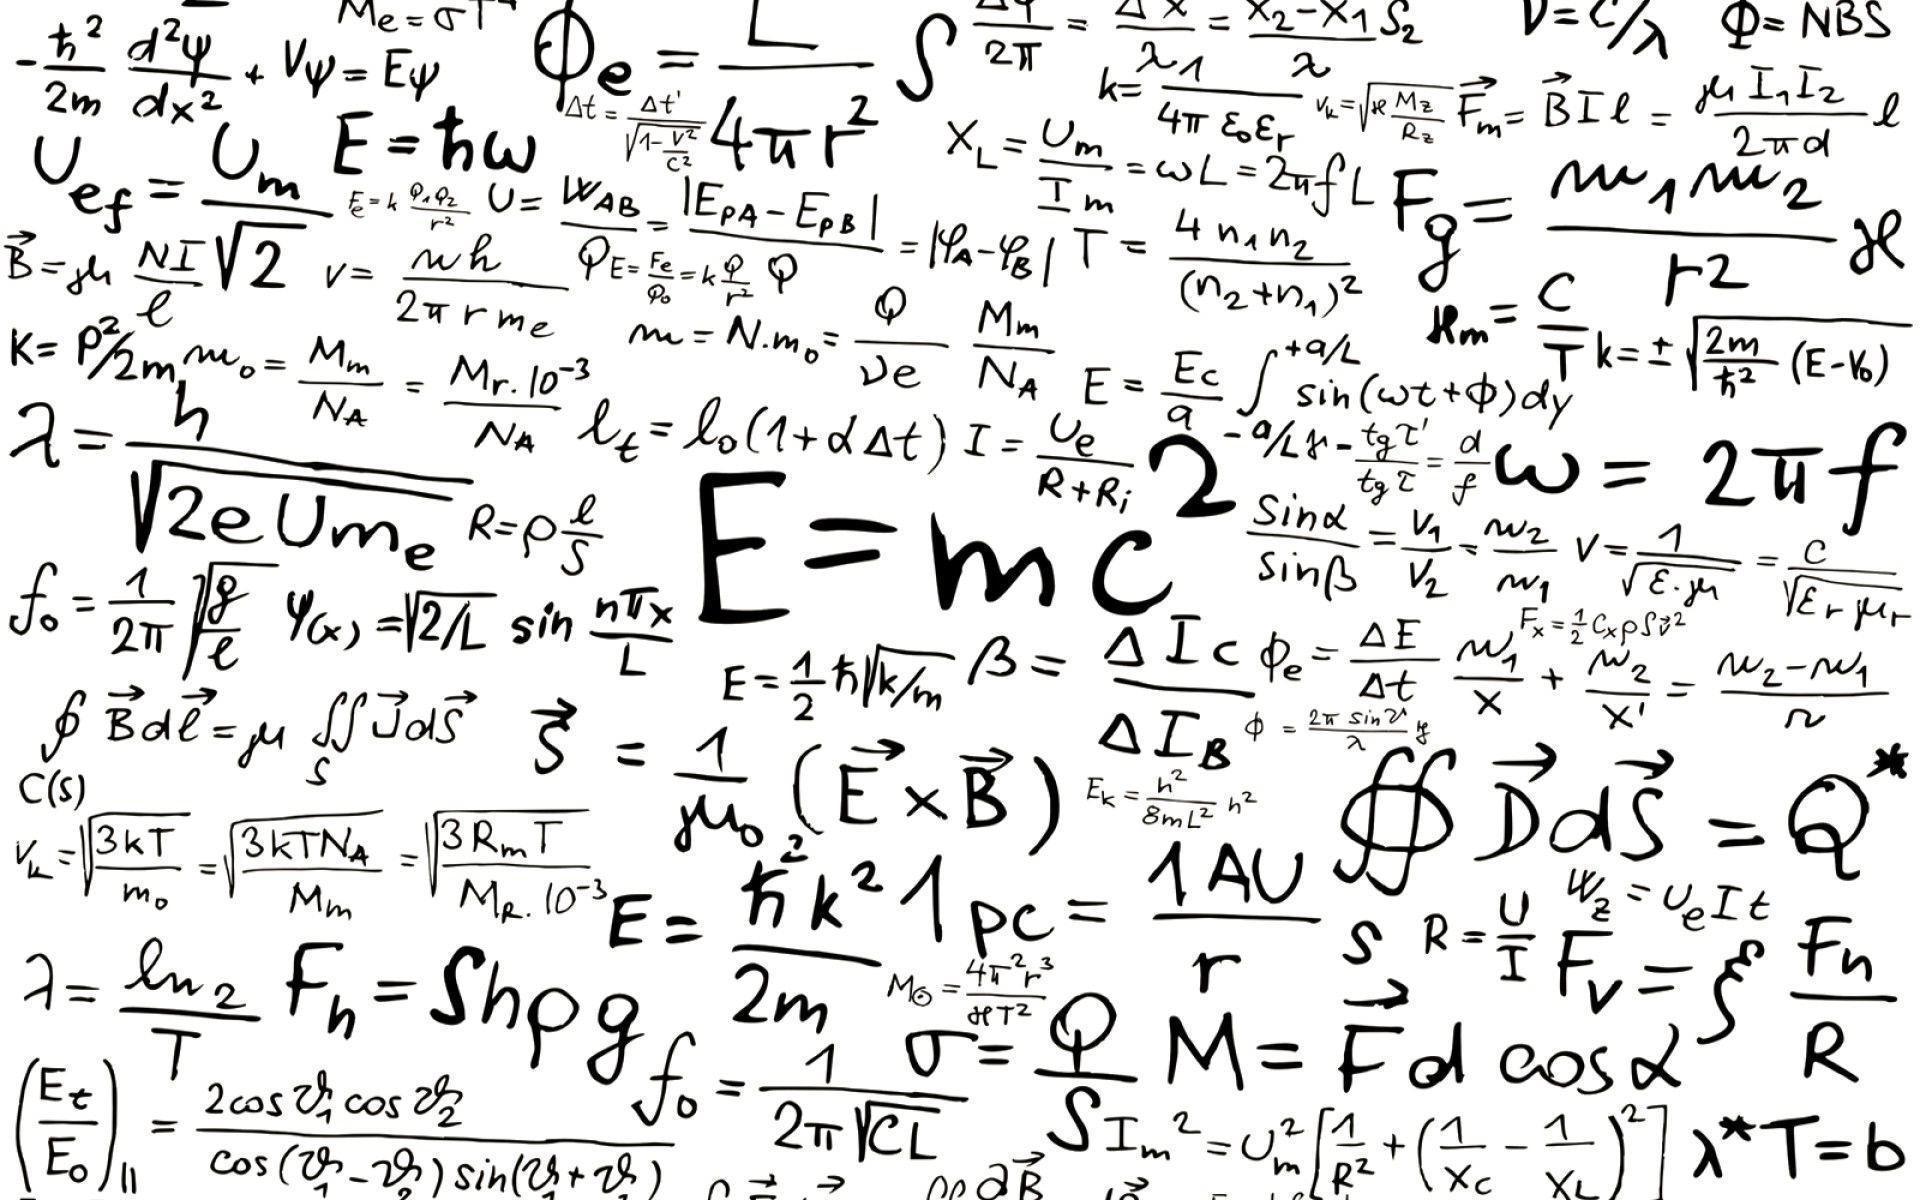 M_e = σT⁴
-ħ²/2m d²ψ/dx² + Vψ = Eψ
Φ_e = L/4πr²
Δφ/2π = Δx/λ = x₂-x₁/λ
V = c/λ
Φ = NBS
U_ef = U_m/√2
E = ħω
Δt = Δt'/√(1-v²/c²)
k = 1/4π ε₀ε_r
v_k = √(ϰ M_z/R_z)
F⃗_m = B⃗ I l = μ I₁I₂/2πd l
X_L = U_m/I_m = ωL = 2πfL
F_g = m₁m₂/r² ϰ
F_e = k Q₁Q₂/r²
U = W_AB/Q = |E_pA - E_pB|/Q = |φ_A - φ_B|
T = 4 n₁n₂/(n₂+n₁)²
B⃗ = μ NI/l
v = nh/2π r m_e
E = F_e/Q₀ = k Q/r²
ϰ_m = C/T
K = p²/2m
m₀ = M_m/N_A = M_r.10⁻³/N_A
m = N.m₀ = Q/νe M_m/N_A
E = E_c/a ∫ +a/L -a/L sin(ωt+φ)dy
k = ± √(2m/ħ² (E-V₀))
λ = h/√(2eUm_e)
l_t = l₀(1+αΔt)
I = U_e/R+R_i
tgτ'/tgτ = d/f
ω = 2πf
R = ρ l/S
E = mc²
sinα/sinβ = v₁/v₂ = n₂/n₁
v = 1/√(ε.μ) = c/√(ε_r μ_r)
f₀ = 1/2π √(g/l)
ψ(x) = √(2/L) sin nπx/L
F_x = 1/2 C_xρSv²
E = 1/2 ħ√(k/m)
β = ΔI_C/ΔI_B
ϕ_e = ΔE/Δt
n₁/x + n₂/x' = n₂-n₁/r
∮ B⃗dl⃗ = μ ∬ J⃗dS⃗
C(S) S
S⃗ = 1/μ₀ (E⃗ × B⃗)
E_k = h²/8mL² n²
∯ D⃗dS⃗ = Q*
S
v_k = √(3kT/m₀) = √(3kTN_A/M_m) = √(3R_mT/M_R.10⁻³)
E = ħ²k²/2m
1 pc = 1AU/r
R = U/I
W_z = U_e I t
λ = ln2/T
F_h = Shρg
M_⊙ = 4π²r³/ϰT²
F_v = ∫ F_n/R
σ = Q/S
M = F⃗ d cosα
(E_t/E₀)_∥ = 2cosϑ₁cosϑ₂/cos(ϑ₁-ϑ₂)sin(ϑ₁+ϑ₂)
f₀ = 1/2π√(CL)
I_m² = U_m² [1/R² + (1/X_C - 1/X_L)²]
λ*T = b